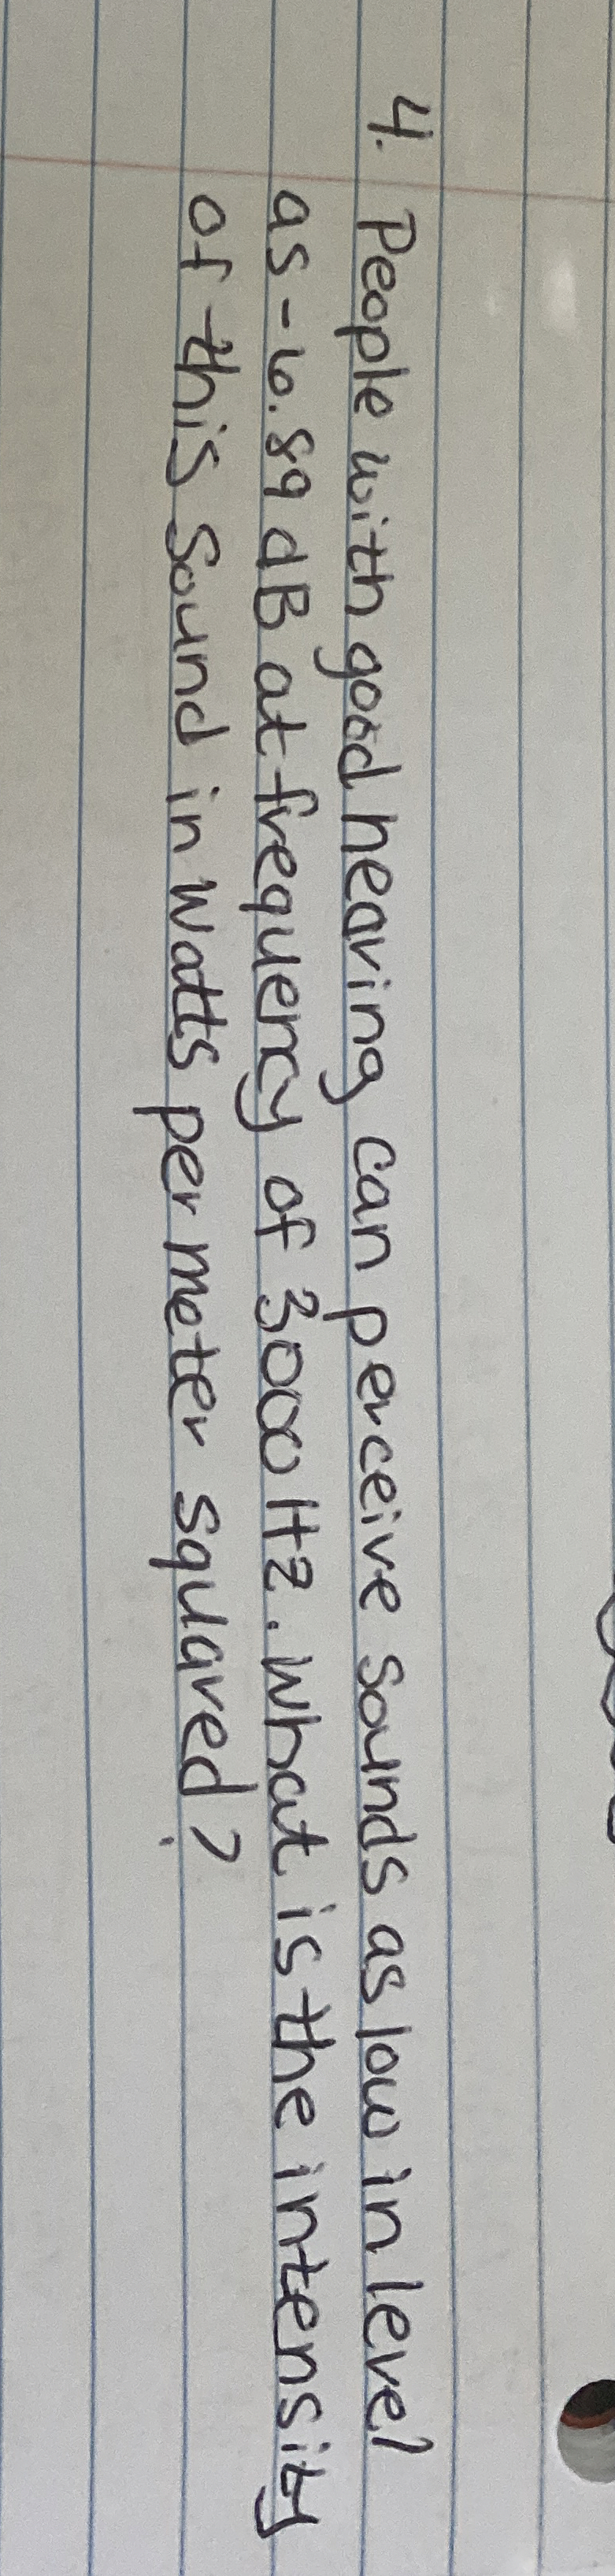 4. People with good hearing can perceive sounds as low in level
as -6.89 dB at frequency of 3000 Hz. What is the intensity
of this sound in watts per meter squared?